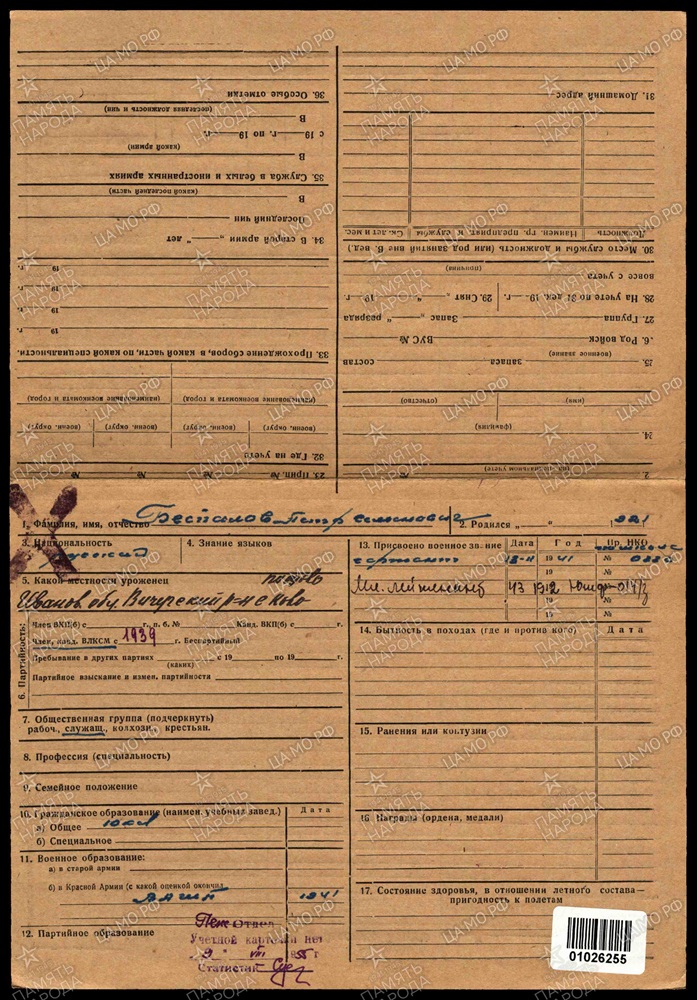 36. Особые отметки
(последняя должность и чин)
В
с 19 — г. по 19 — г.
(какой армии)
В
35. Служба в белых и иностранных армиях
(какой последней части)
В
Последний чин
34. В старой армии „ — " лет
19 г.
19 г.
19 г.
19 г.
33. Прохождение сборов, в какой части, по какой специальности.
(наименование военкомата и город) (наименование военкомата и город)
(воен. округ) (воен. округ) (воен. округ) (воен. округ)
32. Где на учете
23. Прип. № № № №
31. Домашний адрес
Должность Наимен. гр. предприят. к службы Ск. лет и мес.
30. Место службы и должность (или род занятий вне В. вед.)
(причина)
вовсе с учета
28. На учете по 31 дек. 19 — г. 29. Снят „ — " 19 г.
27. Группа Запас разряда
6. Род войск ВУС №
(военное звание)
25. запаса состав
(имя) (отчество)
(фамилия)
24
(на специальном учете)
2
1. Фамилия, имя, отчество Беспалов Петр Семенович 2. Родился „ " 921
3. Национальность русский
4. Знание языков
5. Какой местности уроженец
Иванов. обл. Вичугский р-н
6. Партийность:
Член ВКП(б) с г. п. б. № Канд. ВКП(б) с г.
Член, канд. ВЛКСМ с 1939 г. Беспартийный
Пребывание в других партиях с 19 по 19 г.
(каких)
Партийное взыскание и измен. партийности
7. Общественная группа (подчеркнуть)
рабоч., служащ., колхозн., крестьян.
8. Профессия (специальность)
9. Семейное положение
10. Гражданское образование (наимен. учебных завед.) Дата
а) Общее 10 кл
б) Специальное
11. Военное образование:
а) в старой армии
б) в Красной Армии (с какой оценкой окончил
1941
12. Партийное образование
Отдел
Учетной карточки нет
9 " VIII 195 г
Статистик
13. Присвоено военное звание Дата Год Пр. НКО
сержант 18-11 1941 №
Мл. лейтенант 43 1942
19 №
19 №
14. Бытность в походах (где и против кого) Дата
15. Ранения или контузии
16. Награды (ордена, медали)
17. Состояние здоровья, в отношении летного состава—
пригодность к полетам
01026255
ПАМЯТЬ НАРОДА
ЦАМО.РФ